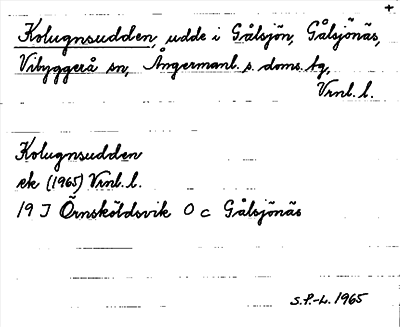 +
Kolugnsudden, udde i Gålsjön, Gålsjönäs,
Vibyggerå sn, Ångermanl. s. doms. tg,
Vrnl. l.
Kolugnsudden
ek (1965) Vrnl. l.
19 J Örnsköldsvik 0 c Gålsjönäs
S.P.-L. 1965